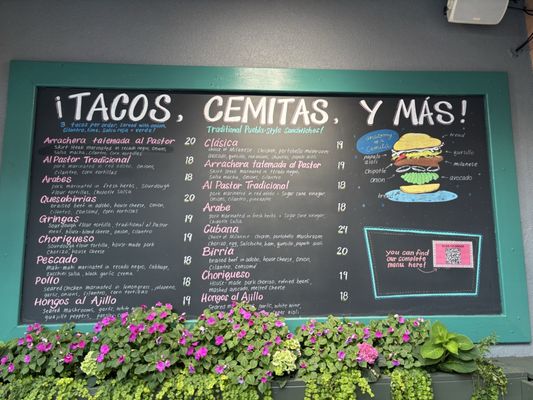 ¡TACOS, CEMITAS, Y MÁS!
3 tacos per order, served with onion,
cilantro, lime, salsa roja + verde!
Arrachera tatemada al Pastor 20
Skirt steak marinated in recado negro, onion,
salsa macha, onion, cilantro, corn tortillas
Al Pastor Tradicional 18
pork marinated in red adobo, onion,
cilantro, corn tortillas
Arabes 18
pork marinated in fresh herbs, sourdough
flour tortillas, chipotle salsa
Quesabirrias 20
braised beef in adobo, house cheese, onion,
cilantro, consomé, corn tortillas
Gringas 19
sourdough flour tortilla, traditional al Pastor
meat, house-blend cheese, onion, cilantro
Chorigueso 19
flour tortilla, house-made pork
chorizo, house cheese
Pescado 18
Mahi-mahi marinated in recado negro, cabbage,
salsa, black garlic crema
Pollo 18
seared chicken marinated in lemongrass, jalapeño,
garlic, onions, cilantro, corn tortillas
Hongos al Ajillo 18
Seared mushrooms, garlic, white wine,
Traditional Puebla-style Sandwiches!
Clásica 19
Milanese, chicken, portobello mushroom
Arrachera tatemada al Pastor 19
Skirt steak marinated in recado negro,
salsa macha, onion, cilantro
Al Pastor Tradicional 18
pork marinated in red adobo + sugar cane vinegar,
onions, cilantro
Arabe 18
pork marinated in fresh herbs + sugar cane vinegar,
onions, chipotle salsa
Cubana 29
chicken, portobello mushroom
chorizo, egg, salchicha, ham, quesillo, papali
Birria 20
braised beef in adobo, house cheese, onion,
cilantro, consomé
Chorigueso 19
House made pork chorizo, refried beans,
mashed avocado, melted cheese
Hongos al Ajillo 18
Seared mushrooms, garlic, white wine
guajillo peppers
anatomy of a
Cemita
bread
papalo
quesillo
onion
milanese
chipotle
avocado
onion
you can find
our complete
menu here!